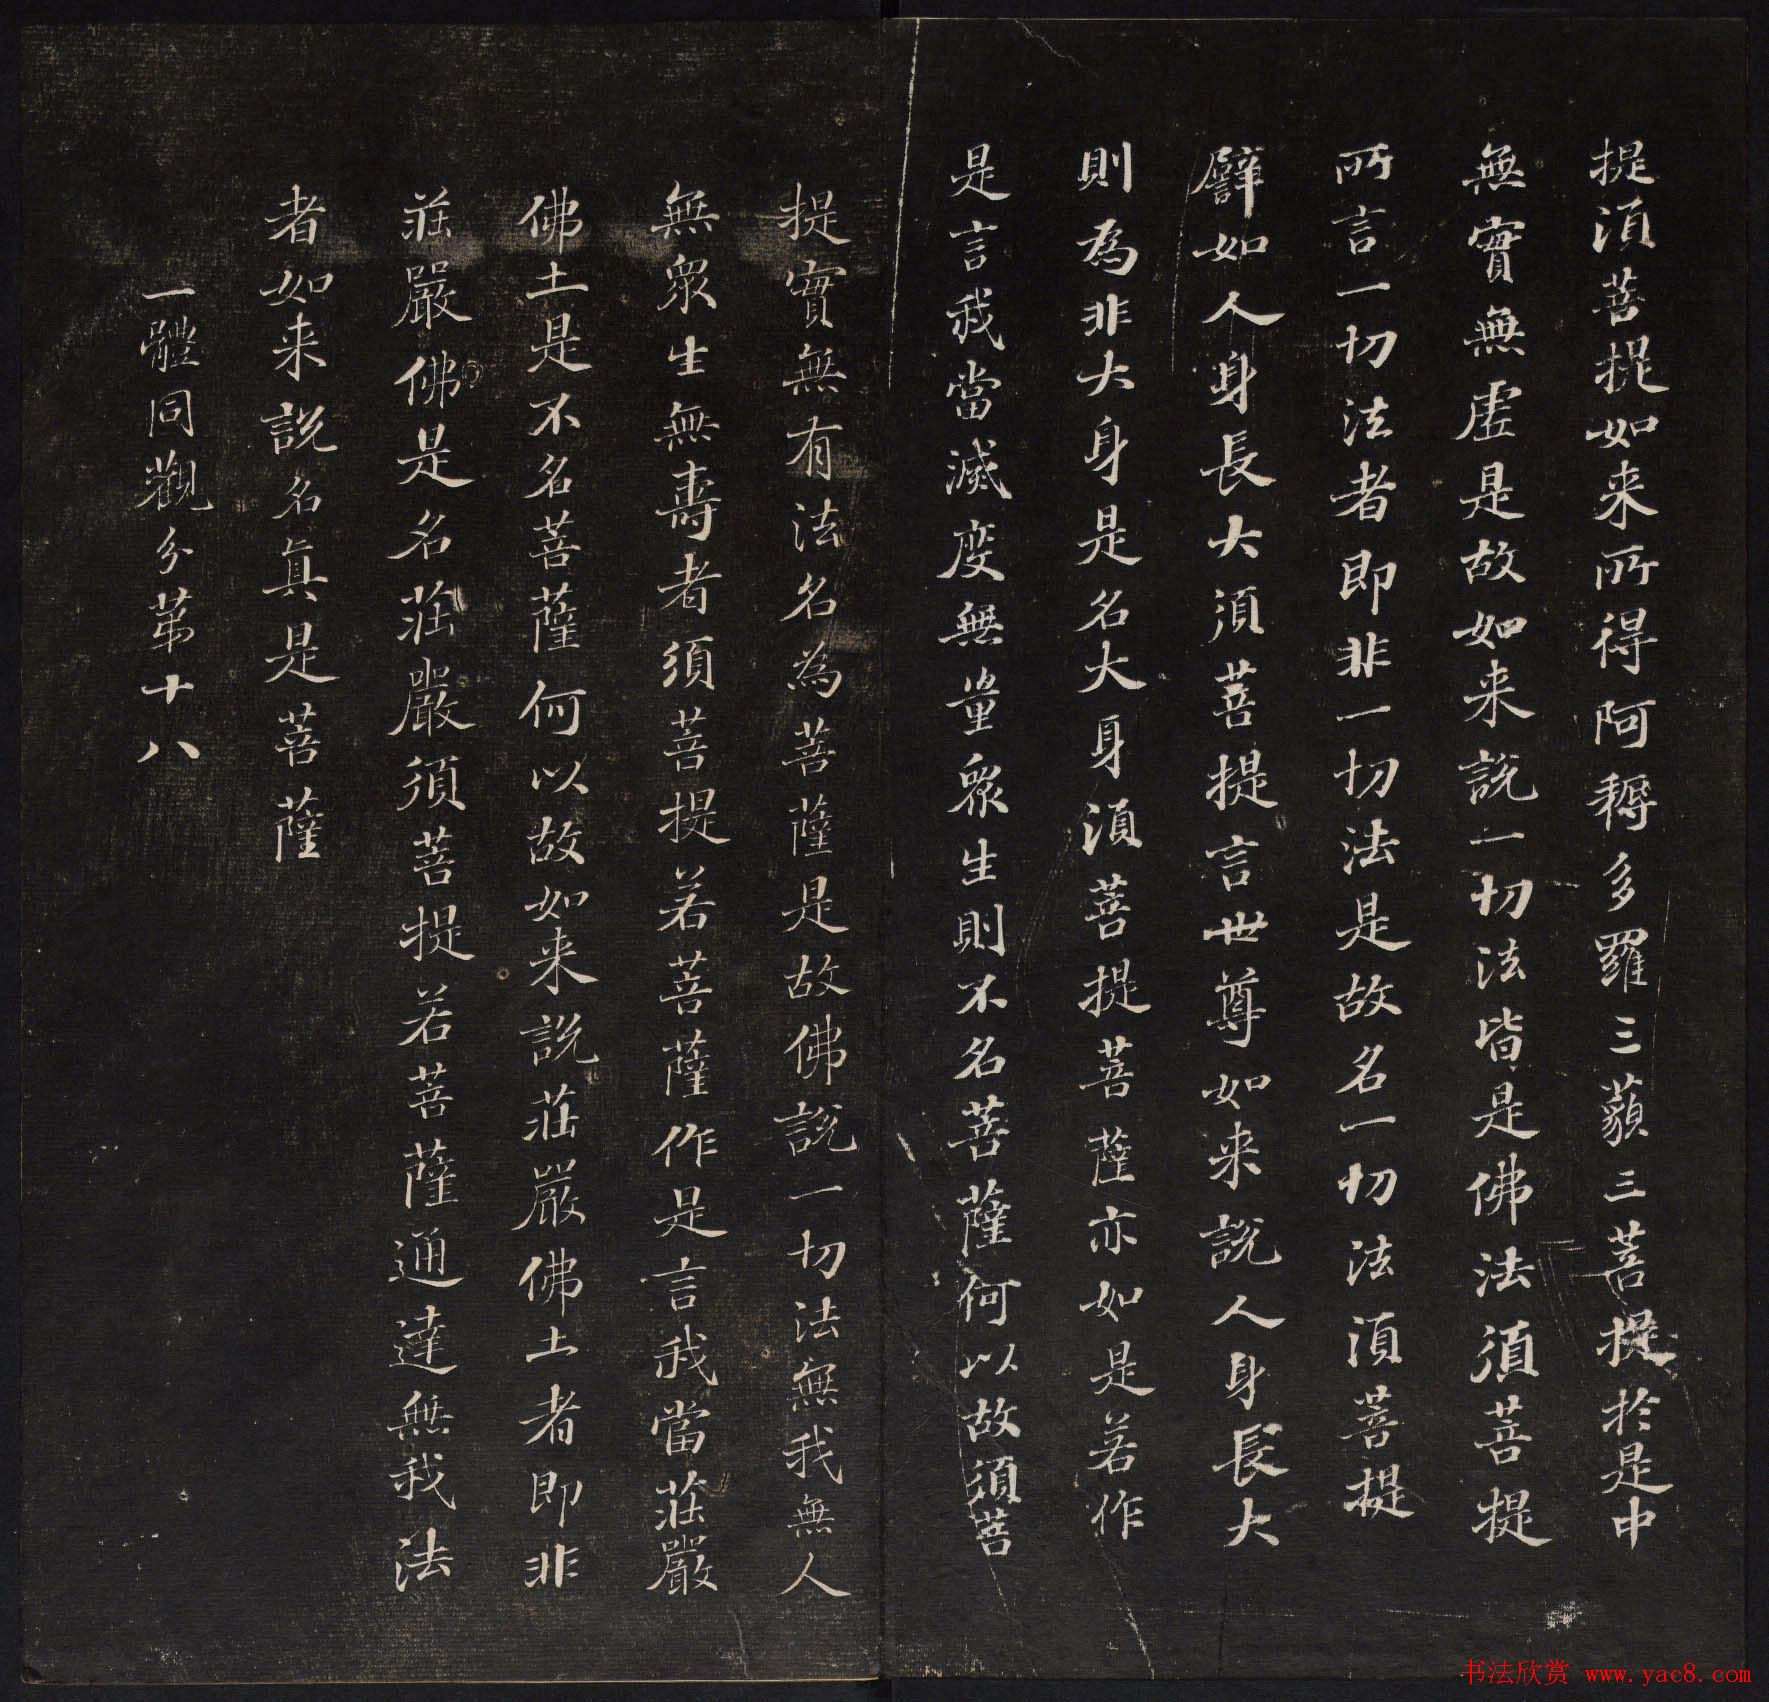 提須菩提如来所得阿耨多羅三藐三菩提於是中
無實無虛是故如来說一切法皆是佛法須菩提
所言一切法者即非一切法是故名一切法須菩提
譬如人身長大須菩提言世尊如来說人身長大
則為非大身是名大身須菩提菩薩亦如是若作
是言我當滅度無量眾生則不名菩薩何以故須菩
提實無有法名為菩薩是故佛說一切法無我無人
無眾生無壽者須菩提若菩薩作是言我當莊嚴
佛土是不名菩薩何以故如来說莊嚴佛土者即非
莊嚴佛是名莊嚴須菩提若菩薩通達無我法
者如来說名真是菩薩
一體同觀分苐十八
书法欣赏 www.yac8.com